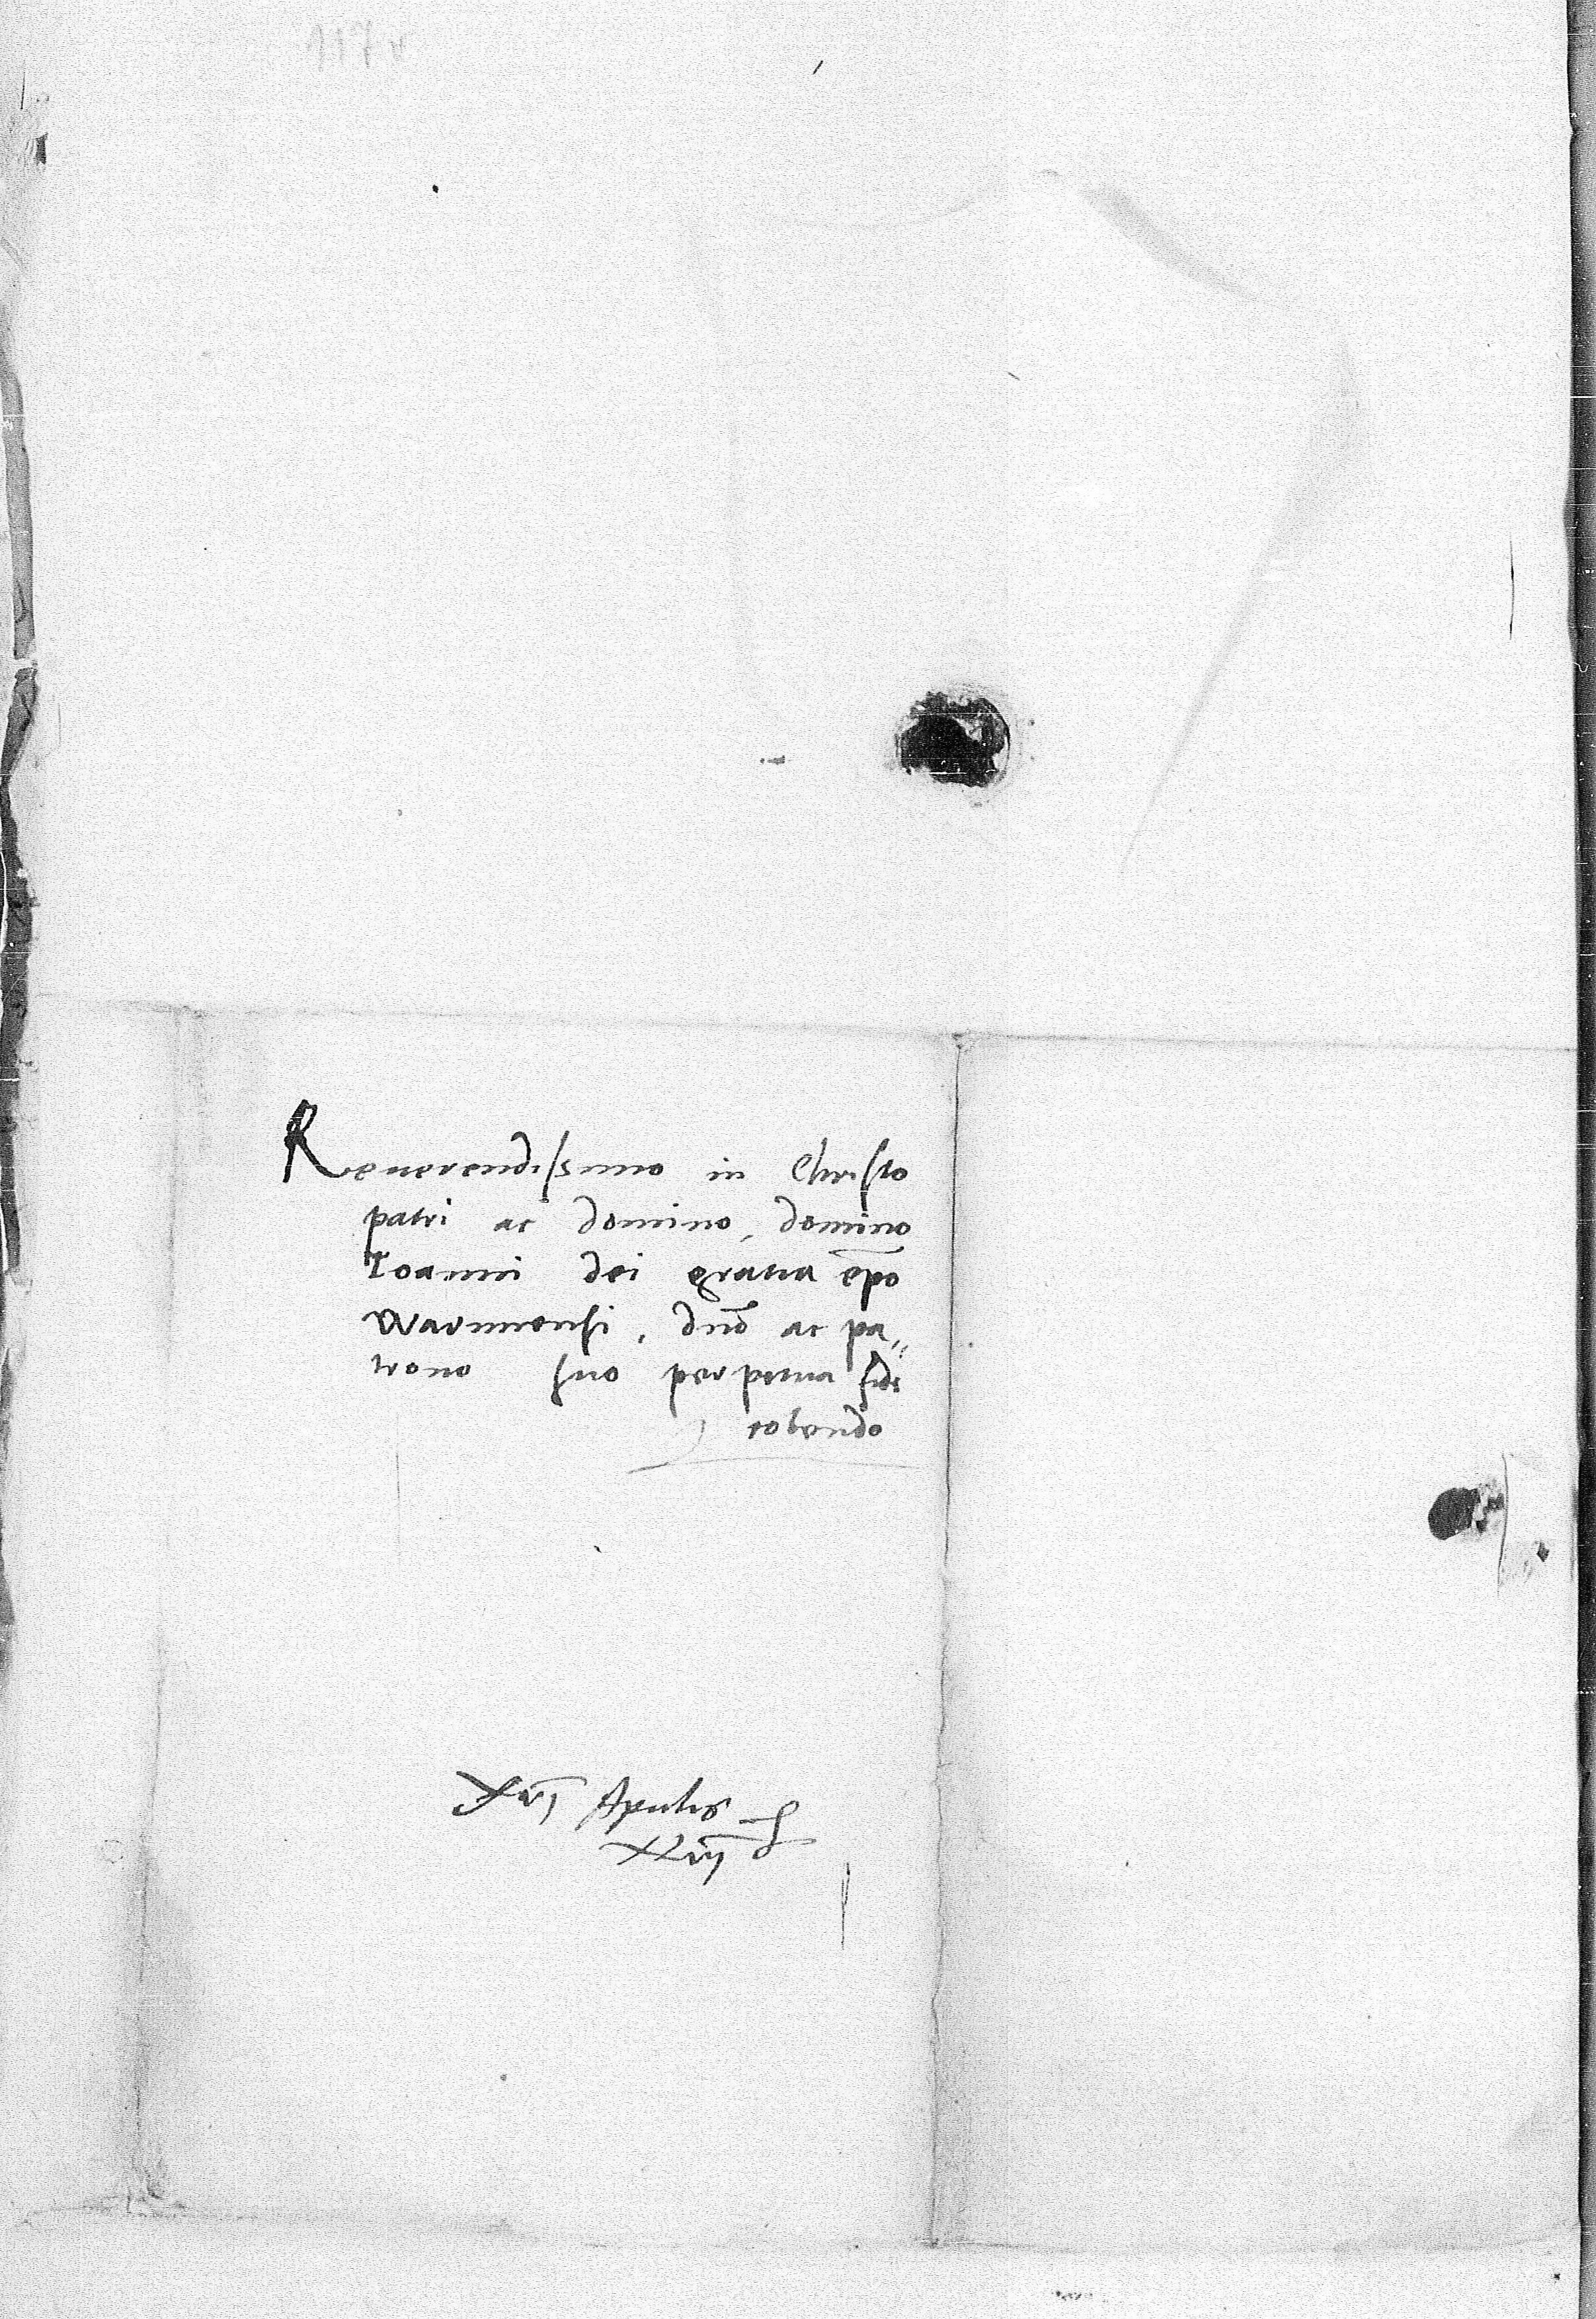 Reuerendissimo in Christo
patri ac domino, domino
Ioanni dei gratia ep̄o
Warmiensi, dn̄o ac pa„
trono suo perpetua fide
colendo
Aprilis